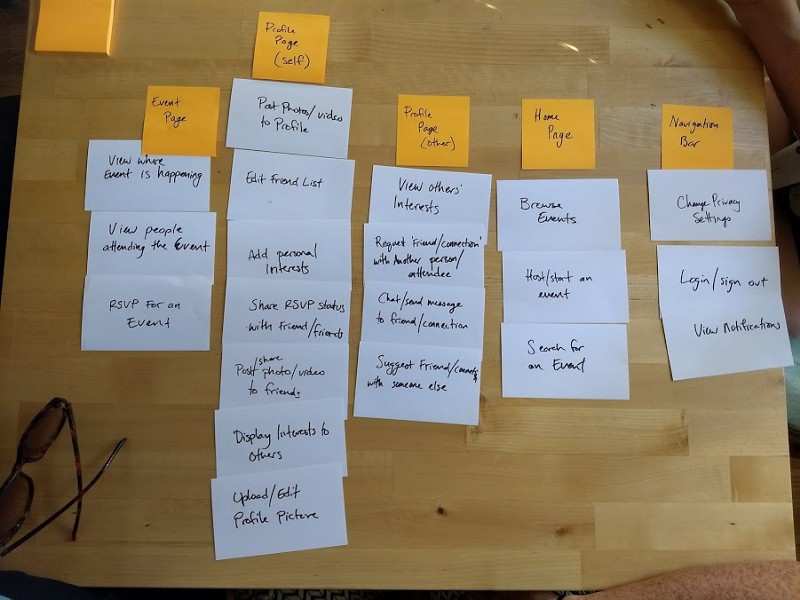 Event
Page
View where
Event is happening
View people
attending the Event
RSVP for an
Event
Profile
Page
(self)
Post Photos/video
to Profile
Edit Friend List
Add personal
Interests
Share RSVP status
with friend/friends
Post/share photo/video
to friends
Display Interests to
Others
Upload/Edit
Profile Picture
Profile
Page
(other)
View others'
Interests
Request 'friend/connection'
with Another person/
attendee
Chat/send message
to friend/connection
Suggest Friend/
with someone else
Home
Page
Browse
Events
Host/start an
event
Search for
an Event
Navigation
Bar
Change Privacy
Settings
Login/sign out
View Notifications